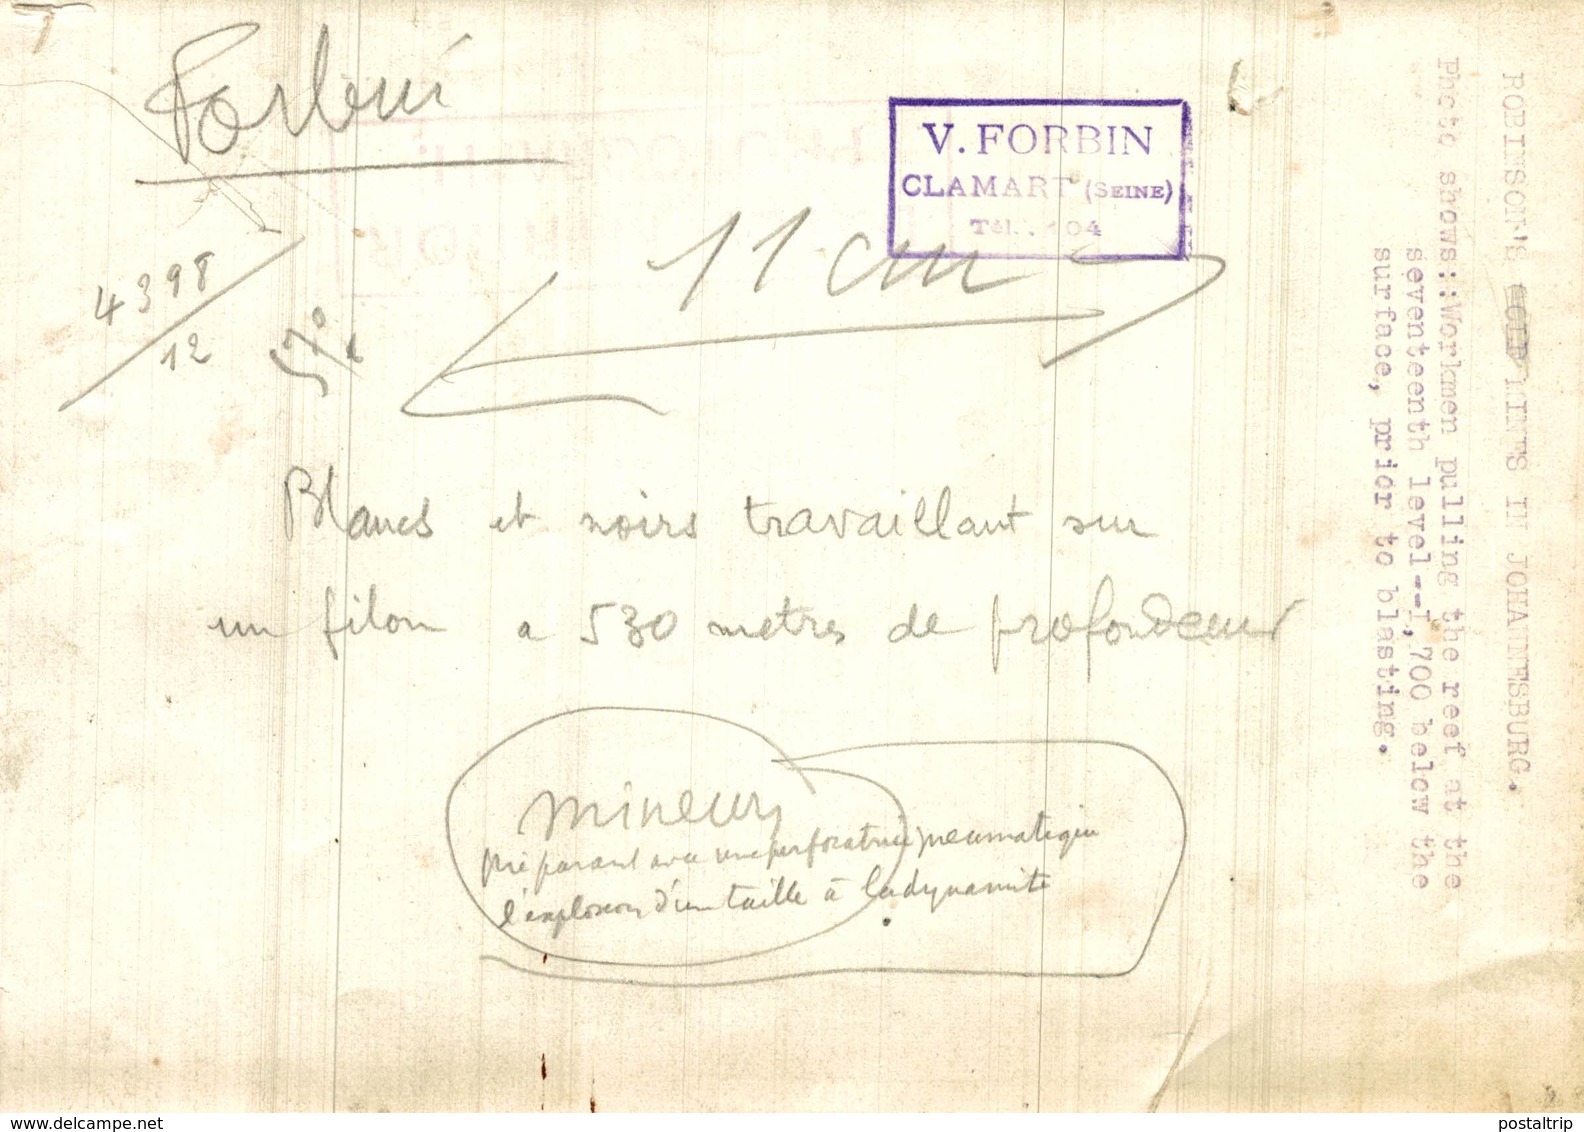 Forbin
V. FORBIN
CLAMART (SEINE)
Tél. 104
11 cm
4398
12
Blancs et noirs travaillant sur
un filon a 530 metres de profondeur
mineurs
préparant avec une perforatrice pneumatique
l'explosion d'une taille à la dynamite
ROBINSON'S GOLD MINES IN JOHANNESBURG.
Photo shows::Workmen pulling the reef at the
seventeenth level--1,700 below the
surface, prior to blasting.
www.delcampe.net
postaltrip